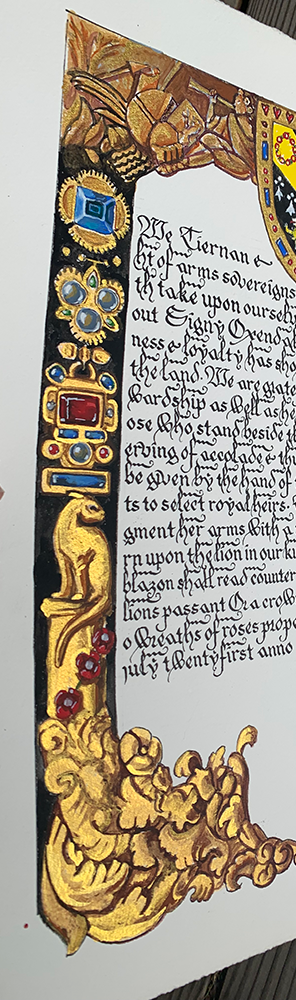 We Tiernan &
ht of arms sovereigns
th take upon ourselv
out Signy Opendga
ness & loyalty has sho
the land. We are grate
wardship as well as he
ose who stand beside th
erving of accolade & th
be given by the hand of
ts to select royal heirs.
gment her arms with a
rn upon the lion in our ki
blazon shall read counter
lions passant Or a crow
o wreaths of roses prope
july twenty first anno